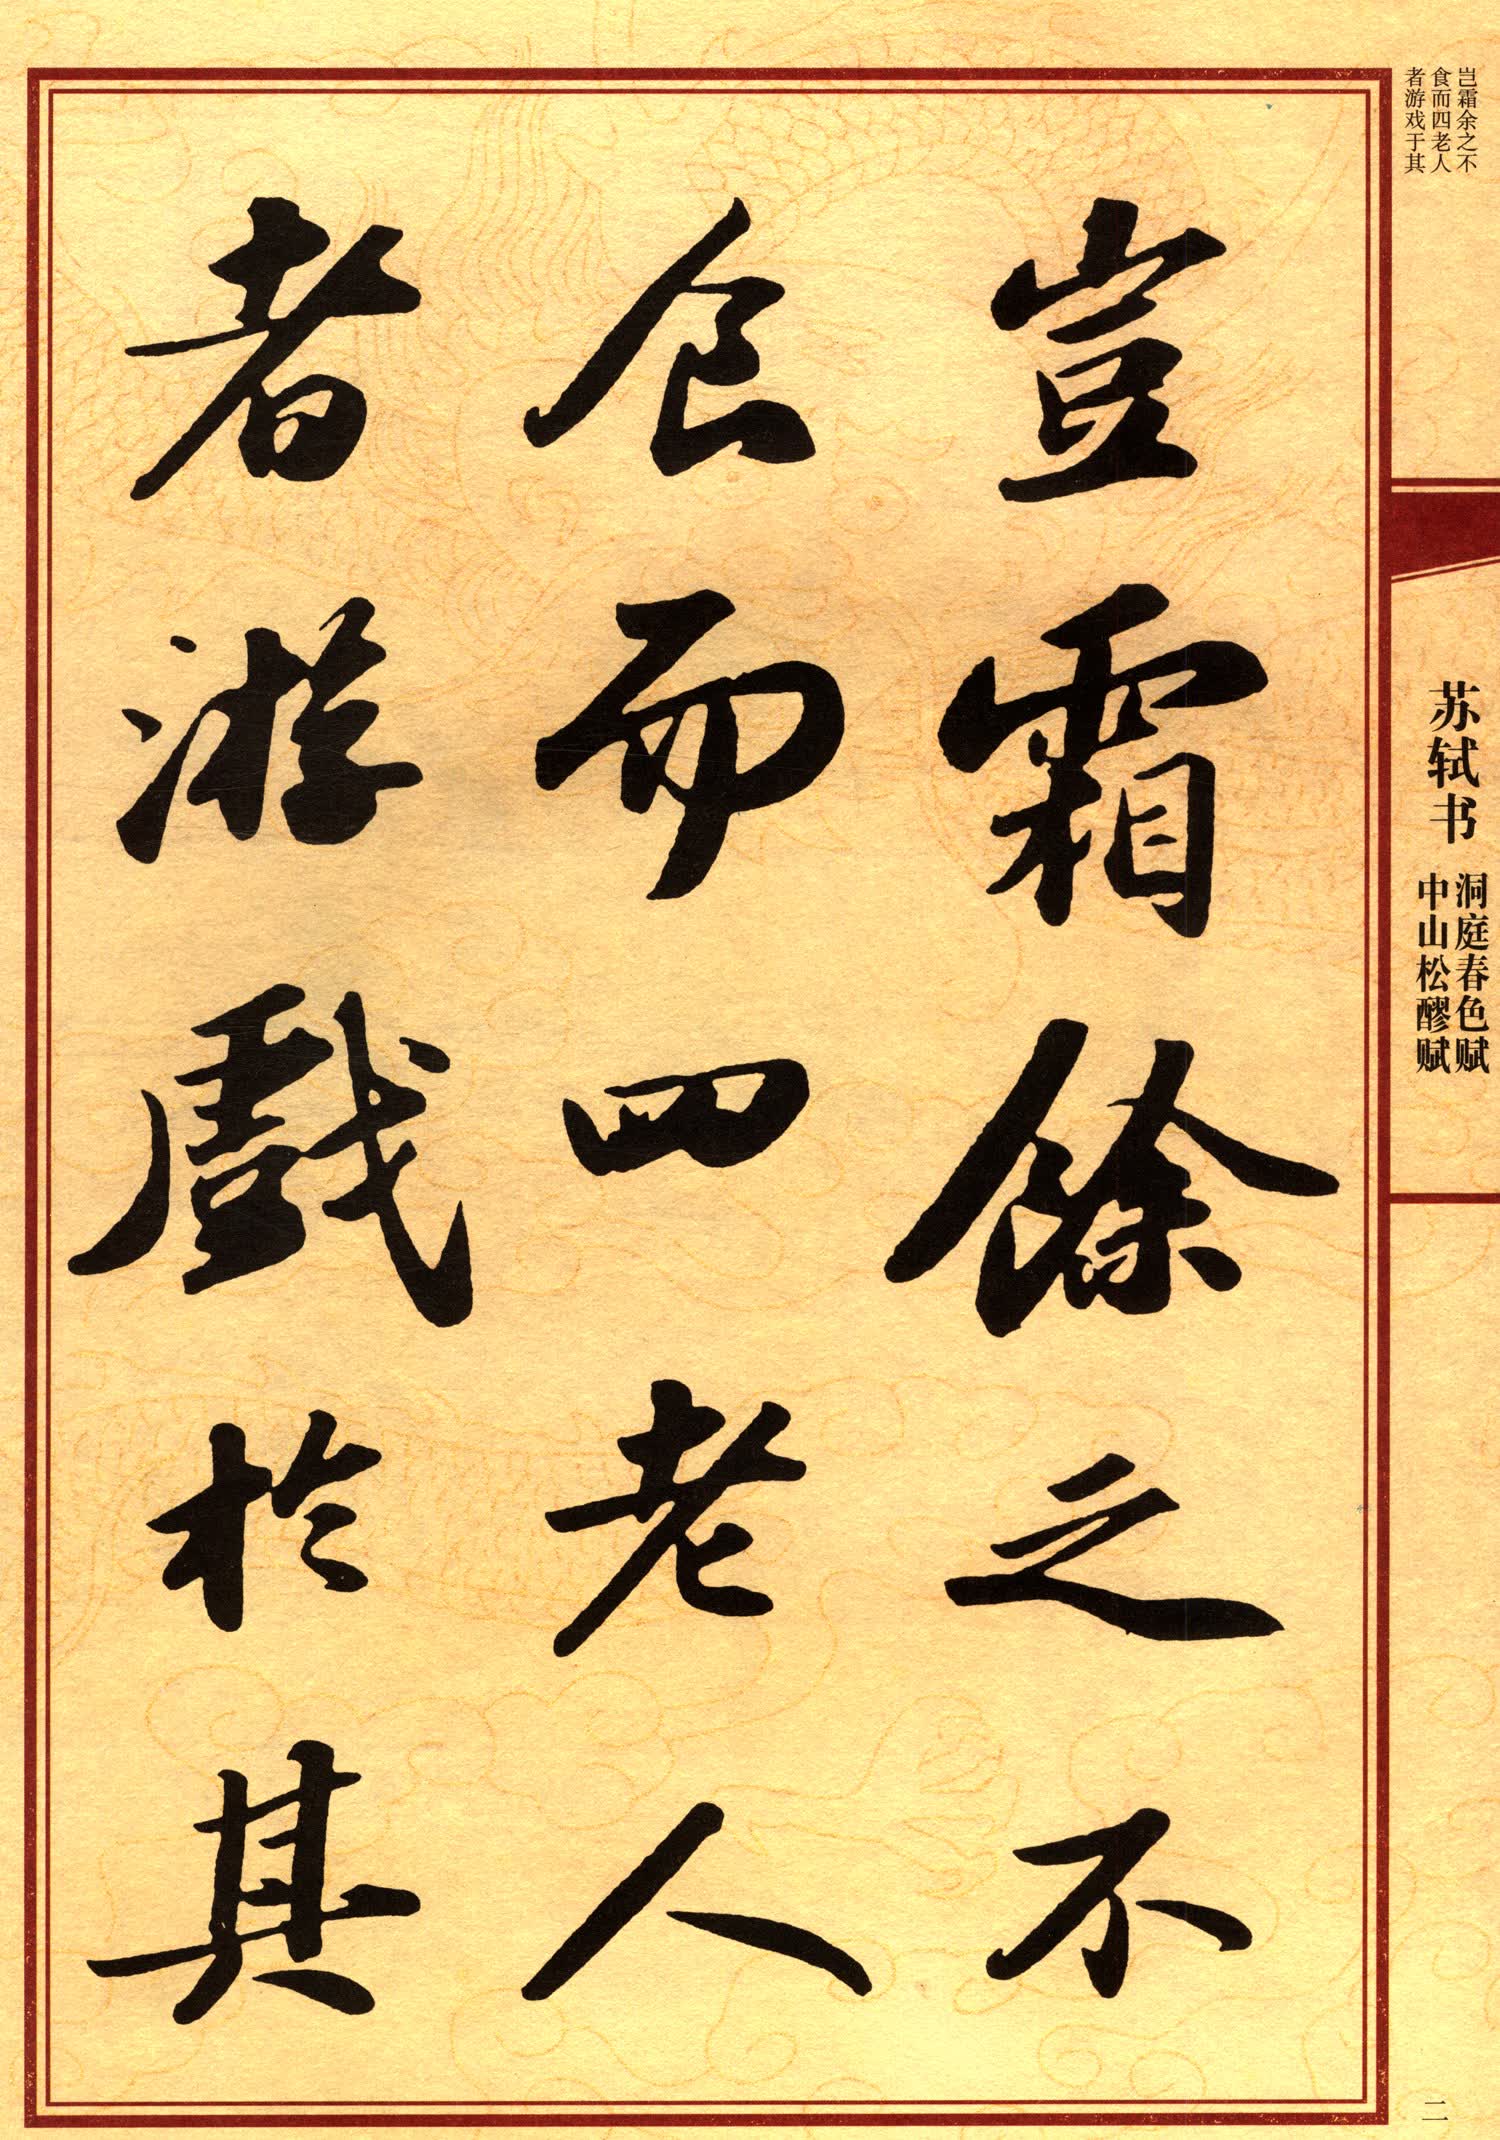 岂霜余之不
食而四老人
者游戏于其
苏轼书
洞庭春色赋
中山松醪赋
豈霜餘之不
食而四老人
者游戲於其
二